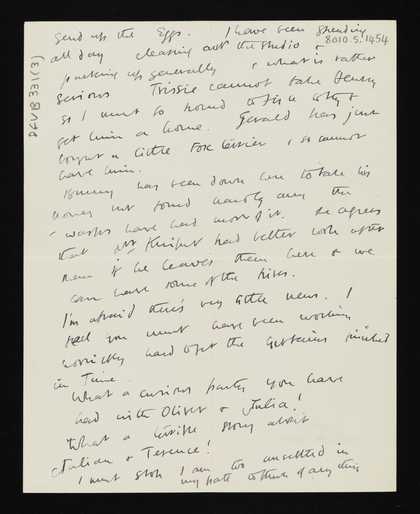 send up the Eggs. I have been spending
8010.5.1454
all day cleaning out the studio &
packing up generally & what is rather
serious Trissie cannot take Henry
so I must go round to try &
get him a home. Gerald has just
bought a little Fox terrier & so cannot
have him.
Bunny has been down here to take his
honey but found hardly any the
wasps have had most of it. He agrees
that Mr Knight had better look after
them if he leaves them here & we
can have some of the hives.
I'm afraid there's very little news. I
feel you must have been working
horribly hard to get the curtains finished
in time.
What a curious party you have
had with Oliver & Julia!
What a terrible story about
Julian & Terence!
I must stop I am too unsettled in
my to think of anything